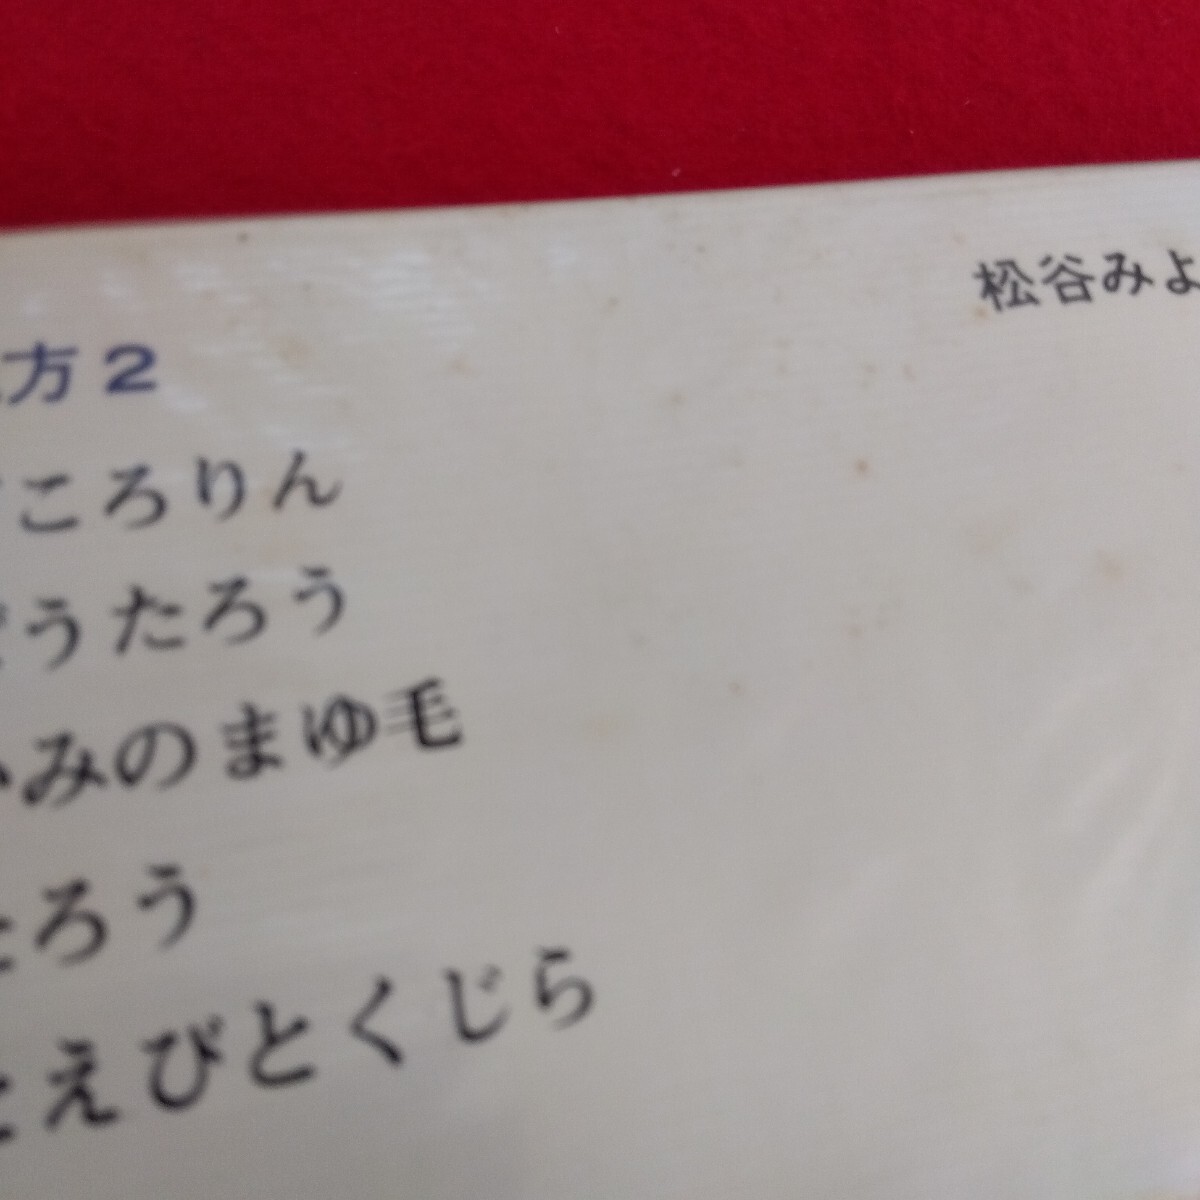 松谷みよ
方2
ころりん
うたろう
みのまゆ毛
ろう
えびとくじら